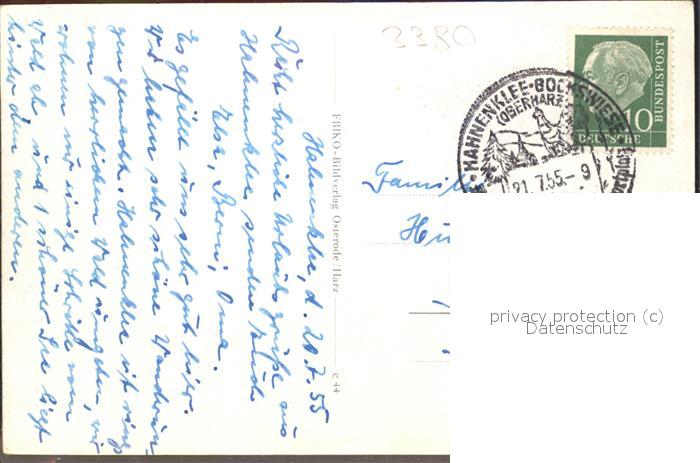 3380
HAHNENKLEE-BOCKSWIESE
(OBERHARZ)
21.7.55.-9
10
DEUTSCHE
BUNDESPOST
Hahnenklee, d. 20.7.55
Recht herzliche Urlaubsgrüße aus
Hahnenklee senden
Oma.
Es gefällt uns sehr gut hier.
Wir haben sehr schöne Wanderun-
gen gemacht. Hahnenklee ist rings
von herrlichem Wald umgeben, wir
wohnen nur einige Schritte vom
Wald ab, und 1 schöner See liegt
hinter dem anderen.
FRIKO-Bildverlag Osterode/Harz
c 44
Familie
privacy protection (c)
Datenschutz